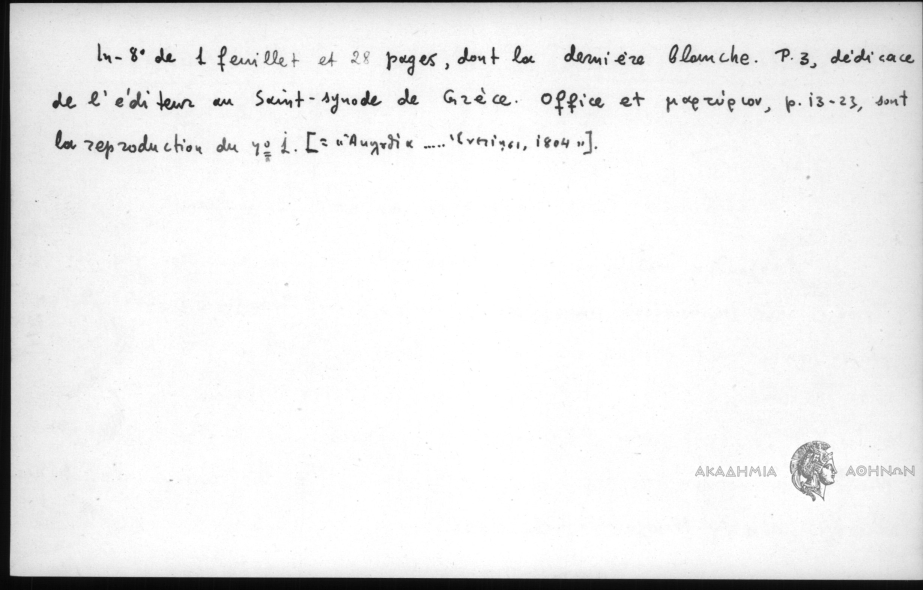 In-8° de 1 feuillet et 28 pages, dont la dernière blanche. P. 3, dédicace
de l'éditeur au Saint-synode de Grèce. Office et μαρτύριον, p. 13-23, sont
la reproduction du nº 1. [= «Ἀκολουθία ..... Ἐνετίῃσι, 1804»].
ΑΚΑΔΗΜΙΑ ΑΘΗΝΩΝ